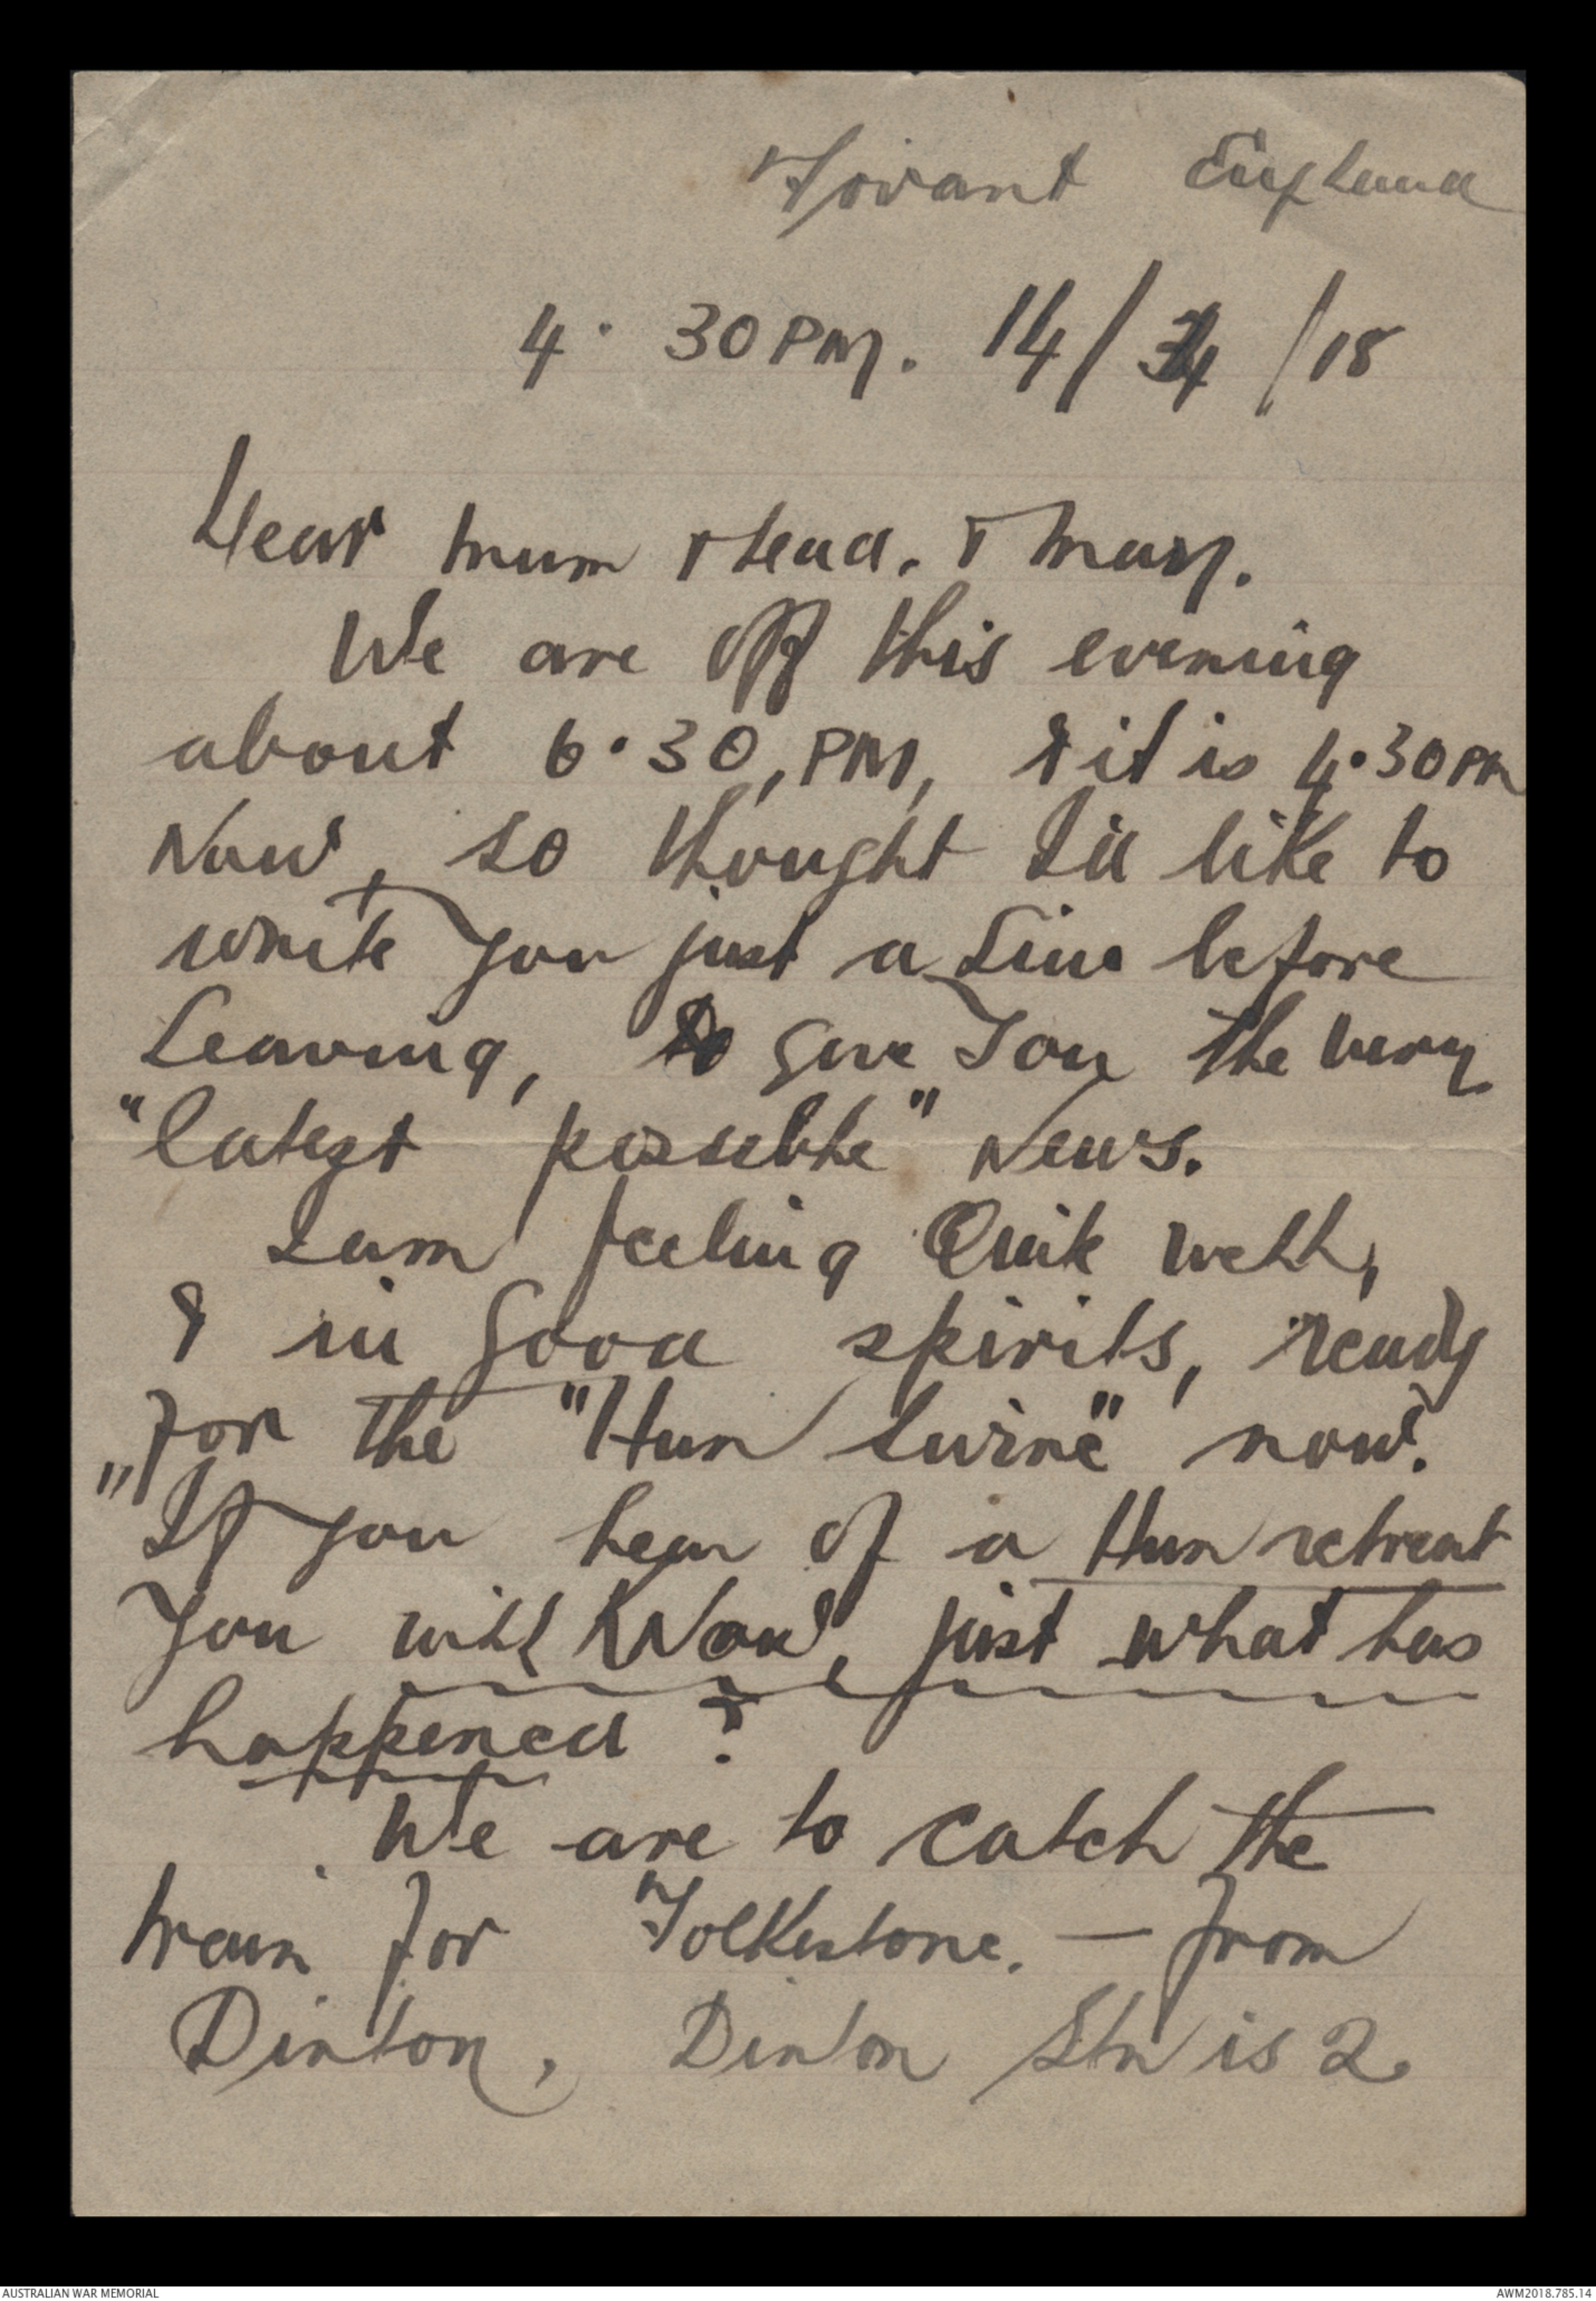 Fovant England
4. 30 PM. 14/4/18
Dear Mum & Dead. & Mary.
We are off this evening
about 6.30, PM, & it is 4.30 PM
Now, so thought I'll like to
write you just a Line before
Leaving, to give You the very
"latest possible" News.
I am feeling Quite well,
& in Good spirits, ready
for the "Hun Swine" now.
"If you hear of a Hun retreat
You will KNow, just what has
happened?
We are to catch the
train for Folkestone. — from
Dinton, Dinton Stn is 2
AUSTRALIAN WAR MEMORIAL
AWM2018.785.14